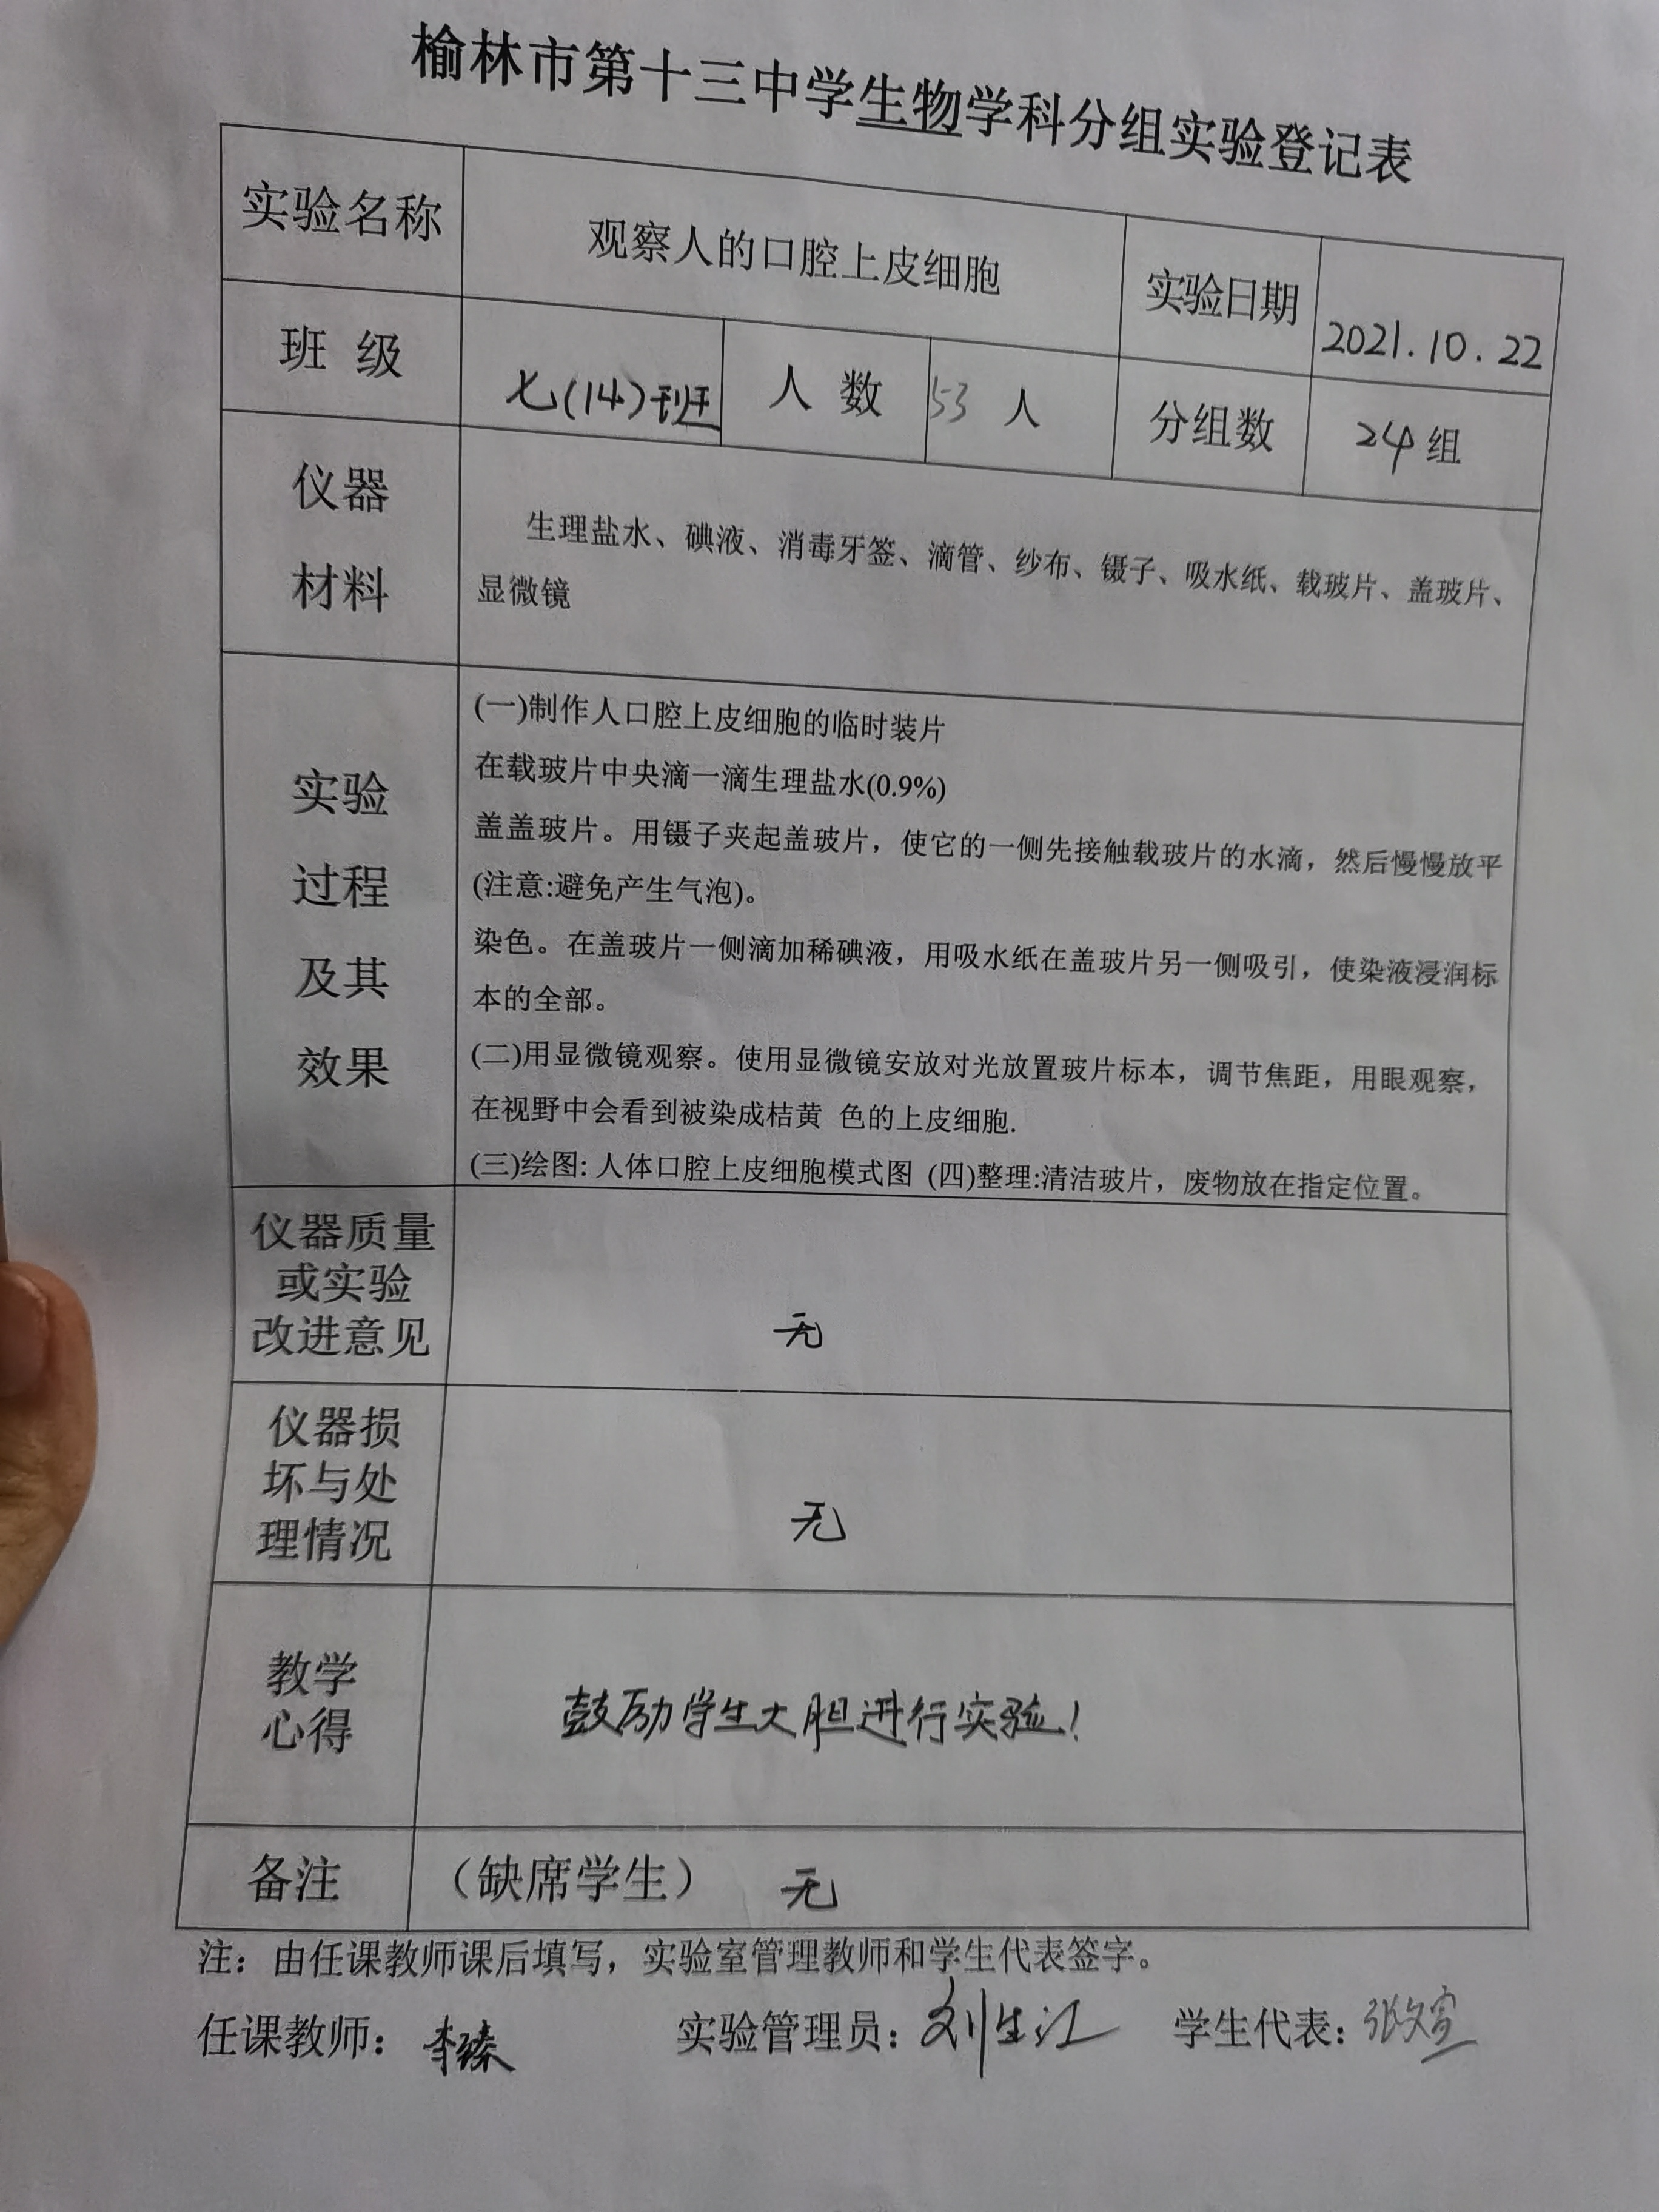 榆林市第十三中学生物学科分组实验登记表
实验名称 观察人的口腔上皮细胞 实验日期 2021.10.22
班 级 七(14)班 人 数 53 人 分组数 24组
仪器
材料
生理盐水、碘液、消毒牙签、滴管、纱布、镊子、吸水纸、载玻片、盖玻片、
显微镜
实验
过程
及其
效果
(一)制作人口腔上皮细胞的临时装片
在载玻片中央滴一滴生理盐水(0.9%)
盖盖玻片。用镊子夹起盖玻片，使它的一侧先接触载玻片的水滴，然后慢慢放平
(注意:避免产生气泡)。
染色。在盖玻片一侧滴加稀碘液，用吸水纸在盖玻片另一侧吸引，使染液浸润标
本的全部。
(二)用显微镜观察。使用显微镜安放对光放置玻片标本，调节焦距，用眼观察，
在视野中会看到被染成桔黄 色的上皮细胞.
(三)绘图: 人体口腔上皮细胞模式图 (四)整理:清洁玻片，废物放在指定位置。
仪器质量
或实验
改进意见
无
仪器损
坏与处
理情况
无
教学
心得
鼓励学生大胆进行实验！
备注 （缺席学生） 无
注：由任课教师课后填写，实验室管理教师和学生代表签字。
任课教师： 实验管理员：刘生江 学生代表：张文宣